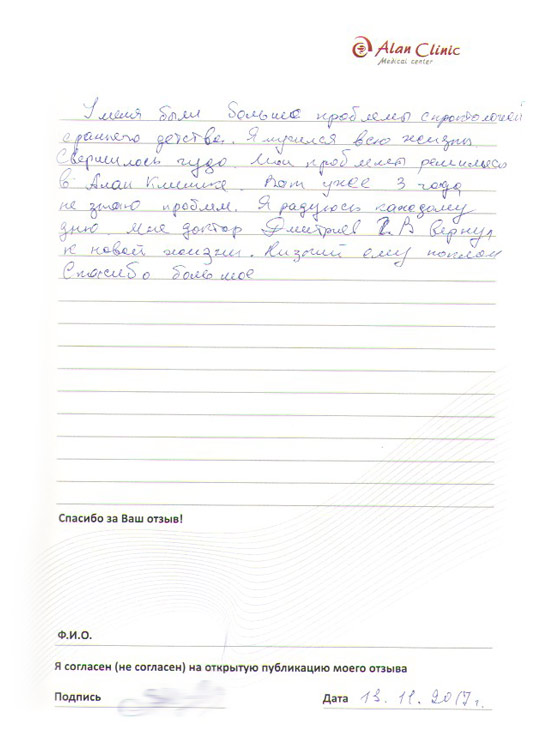 Alan Clinic
Medical center
У меня были большие проблемы с проктологией
с раннего детства. Я мучился всю жизнь
Свершилось чудо Мои проблемы решились
в Алан Клинике. Вот уже 3 года
не знаю проблем. Я радуюсь каждому
дню. Мне доктор Дмитриев Г.В вернул
к новой жизни. Низкий ему поклон
Спасибо большое
Спасибо за Ваш отзыв!
Ф.И.О.
Я согласен (не согласен) на открытую публикацию моего отзыва
Подпись
Дата 13.11.2017г.